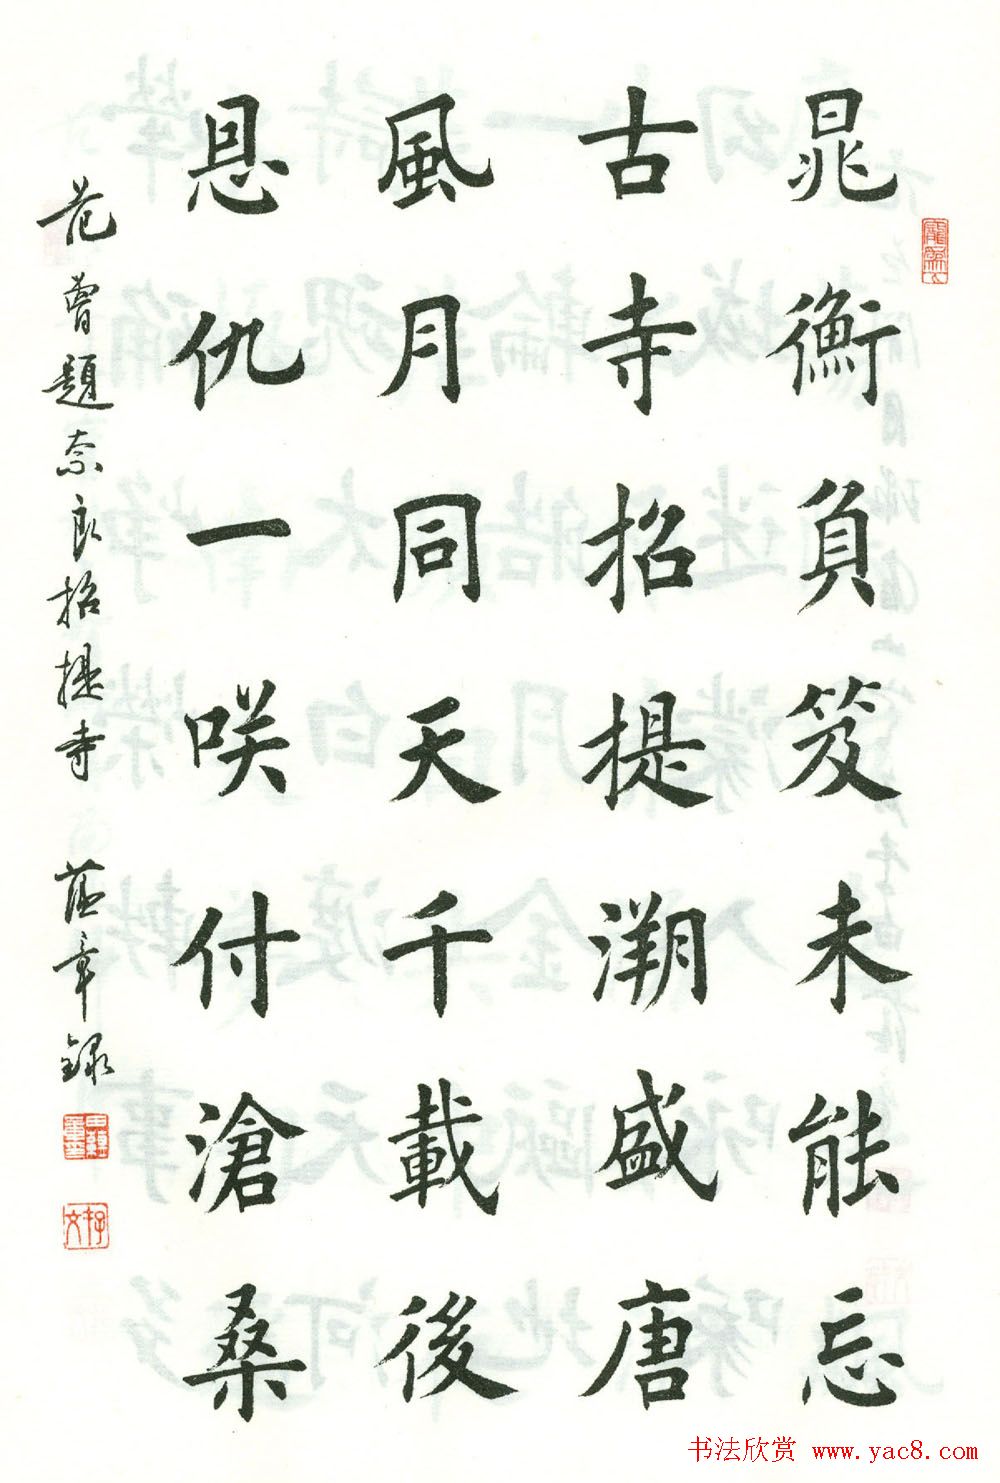 晁衡負笈未能忘
古寺招提溯盛唐
風月同天千載後
恩仇一咲付滄桑
范曾題奈良招提寺 蘊章録
书法欣赏 www.yac8.com